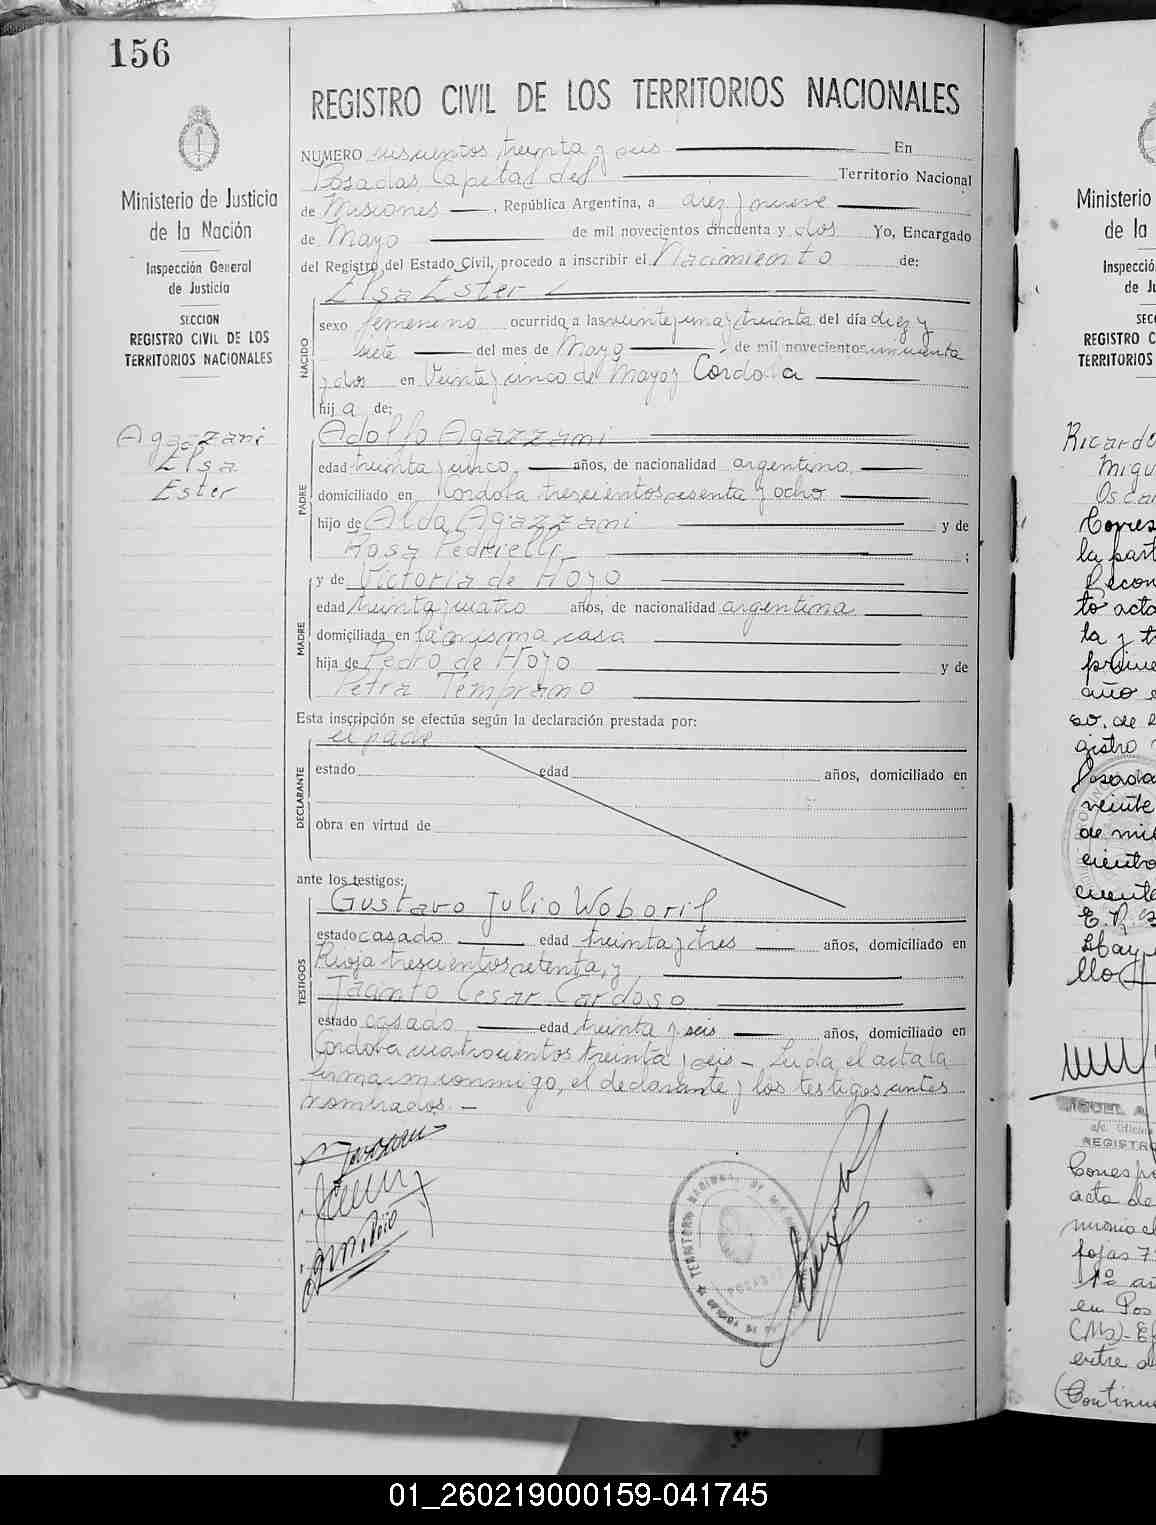 156
Ministerio de Justicia
de la Nación
Inspección General
de Justicia
SECCION
REGISTRO CIVIL DE LOS
TERRITORIOS NACIONALES
Agazzani
Elsa
Ester
REGISTRO CIVIL DE LOS TERRITORIOS NACIONALES
NUMERO seiscientos treinta y seis En
Posadas, Capital del Territorio Nacional
de Misiones, República Argentina, a diez y nueve
de Mayo de mil novecientos cincuenta y dos Yo, Encargado
del Registro del Estado Civil, procedo a inscribir el Nacimiento de:
Elsa Ester
NACIDO
sexo femenino ocurrido a las veinte y una y treinta del día diez y
siete del mes de Mayo de mil novecientos cincuenta
y dos en Veinte y cinco de Mayo y Cordoba
hij a de:
PADRE
Adolfo Agazzani
edad treinta y cinco, años, de nacionalidad argentino,
domiciliado en Cordoba trescientos sesenta y ocho
hijo de Aldo Agazzani y de
Rosa Pedrielli ;
MADRE
y de Victoria de Hoyo
edad treinta y cuatro años, de nacionalidad argentina
domiciliada en la misma casa
hija de Pedro de Hoyo y de
Petra Temprano
Esta inscripción se efectúa según la declaración prestada por:
DECLARANTE
el padre
estado edad años, domiciliado en
obra en virtud de
ante los testigos:
TESTIGOS
Gustavo Julio Woboril
estado casado edad treinta y tres años, domiciliado en
Rioja trescientos setenta, y
Jacinto Cesar Cardoso
estado casado, edad treinta y seis años, domiciliado en
Cordoba cuatrocientos treinta y seis - Leida el acta la
firman conmigo, el declarante y los testigos antes
nombrados. -
TERRITORIO NACIONAL DE
Ministerio
de la
Inspecció
de Ju
SECC
REGISTRO C
TERRITORIOS
Ricardo
Migu
Oscar
Corres
la part
Recon
to acta
la y t
prime
año e
so, de e
gistro
Posada
veinte
de mil
ciento
cuenta
REGISTRO
Corresp
acta de
fojas 7
1º añ
en Pos
entre
(Continu
01_260219000159-041745